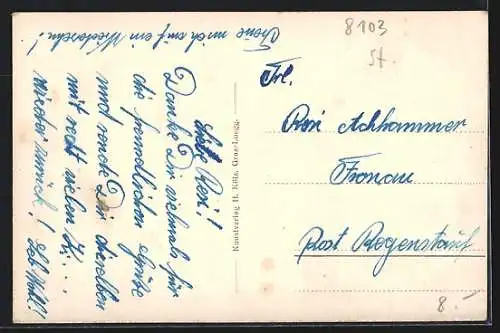 Liebe Resi!
Danke Dir vielmals für
die freundlichen Grüße
und sende Dir dieselben
mit recht vielen
wieder zurück! Leb Wohl!
Freue mich auf ein Wiedersehn!
Kunstverlag H.
8103
St.
Frl.
Resi Achhammer
Fronau
Post Regenstauf
8.-